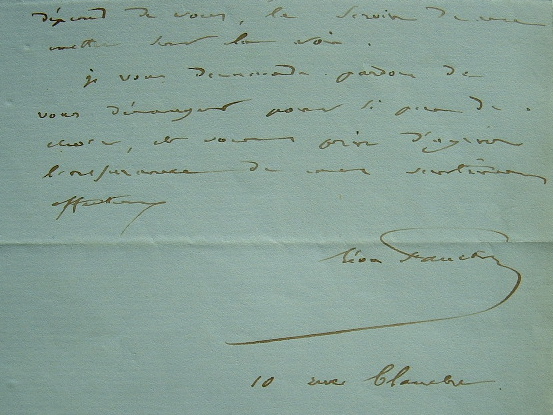 dépend de vous, le service de me
mettre sur la voie.
je vous demande pardon de
vous déranger pour si peu de
chose, et vous prie d'agréer
l'espérance de mes sentiments
affectueux
Léon Faucher
10 rue Blanche.